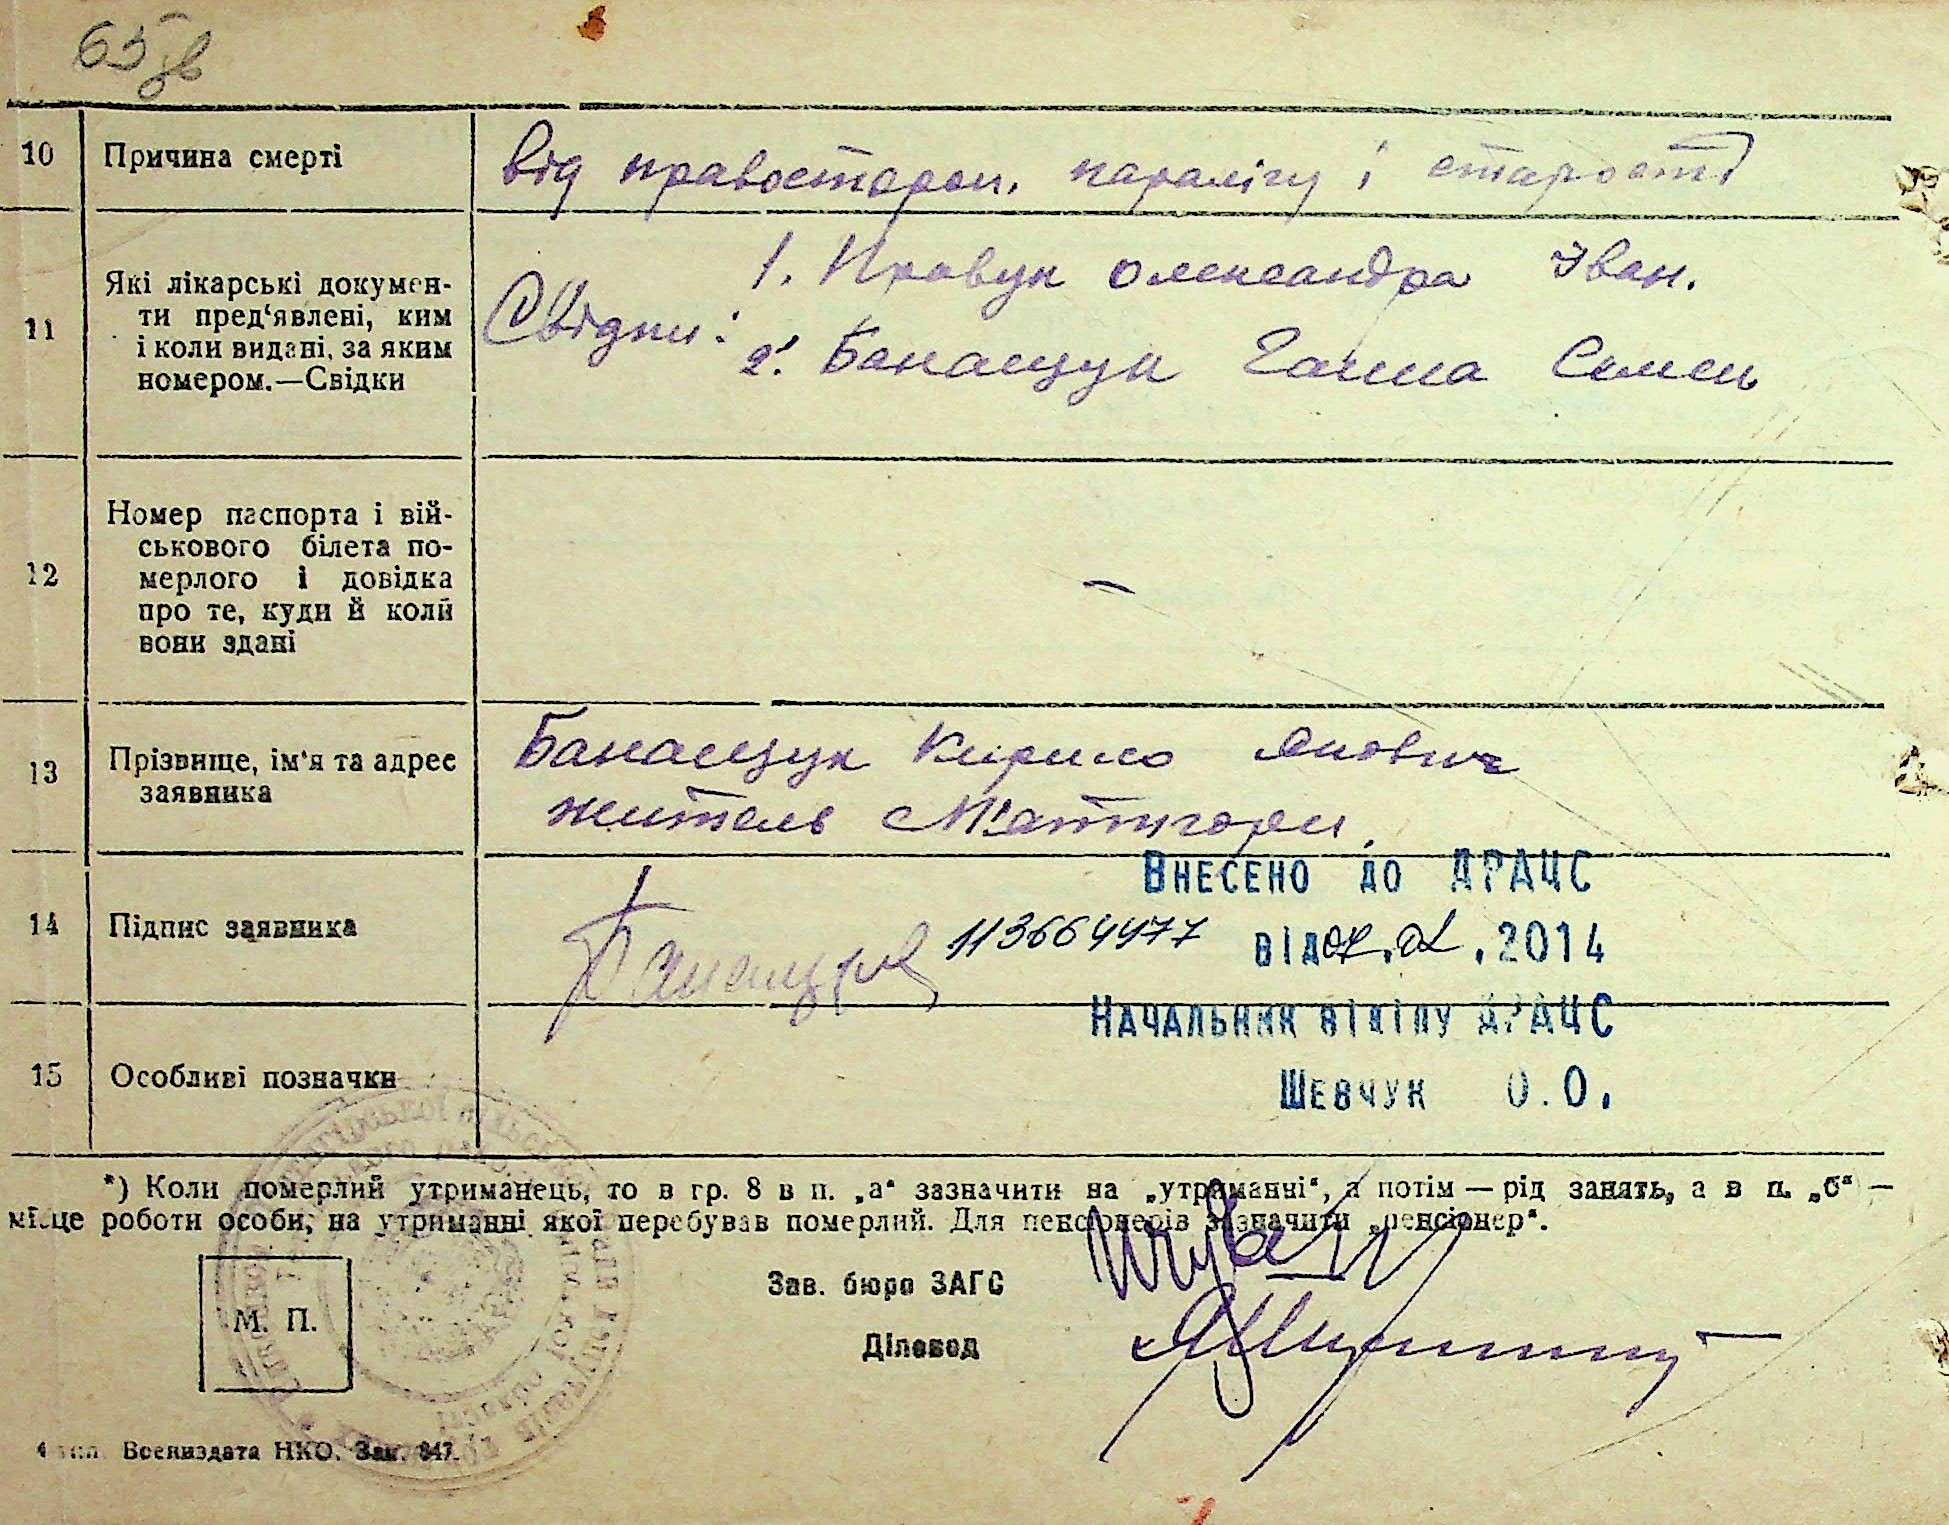 65 зв
10 Причина смерті від правосторон. паралігу і старості
11 Які лікарські докумен-
ти пред‘явлені, ким
і коли видані, за яким
номером.—Свідки
Свідки: 1. Кравук Олександра Іван.
2. Банащук Ганна Семен
12 Номер паспорта і вій-
ськового білета по-
мерлого і довідка
про те, куди й коли
вони здані
–
13 Прізвище, ім‘я та адрес
заявника
Банащук Кирило Якович
житель с М'ятигори
14 Підпис заявника Банащук
Внесено до ДРАЦС
113664477 від .2014
Начальник відділу ДРАЦС
Шевчук О.О.
15 Особливі позначки
*) Коли померлий утриманець, то в гр. 8 в п. „а“ зазначити на „утриманні“, а потім — рід занять, а в п. „б“ —
місце роботи особи, на утриманні якої перебував померлий. Для пенсіонерів зазначити „пенсіонер“.
М. П.
Зав. бюро ЗАГС
Діловод
4 тип. Воениздата НКО. Зак. 847.